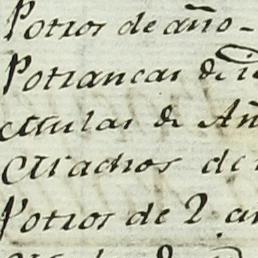 Potros de año-
Potrancas de i
Mulas de Añ
Machos de
Potros de 2 añ